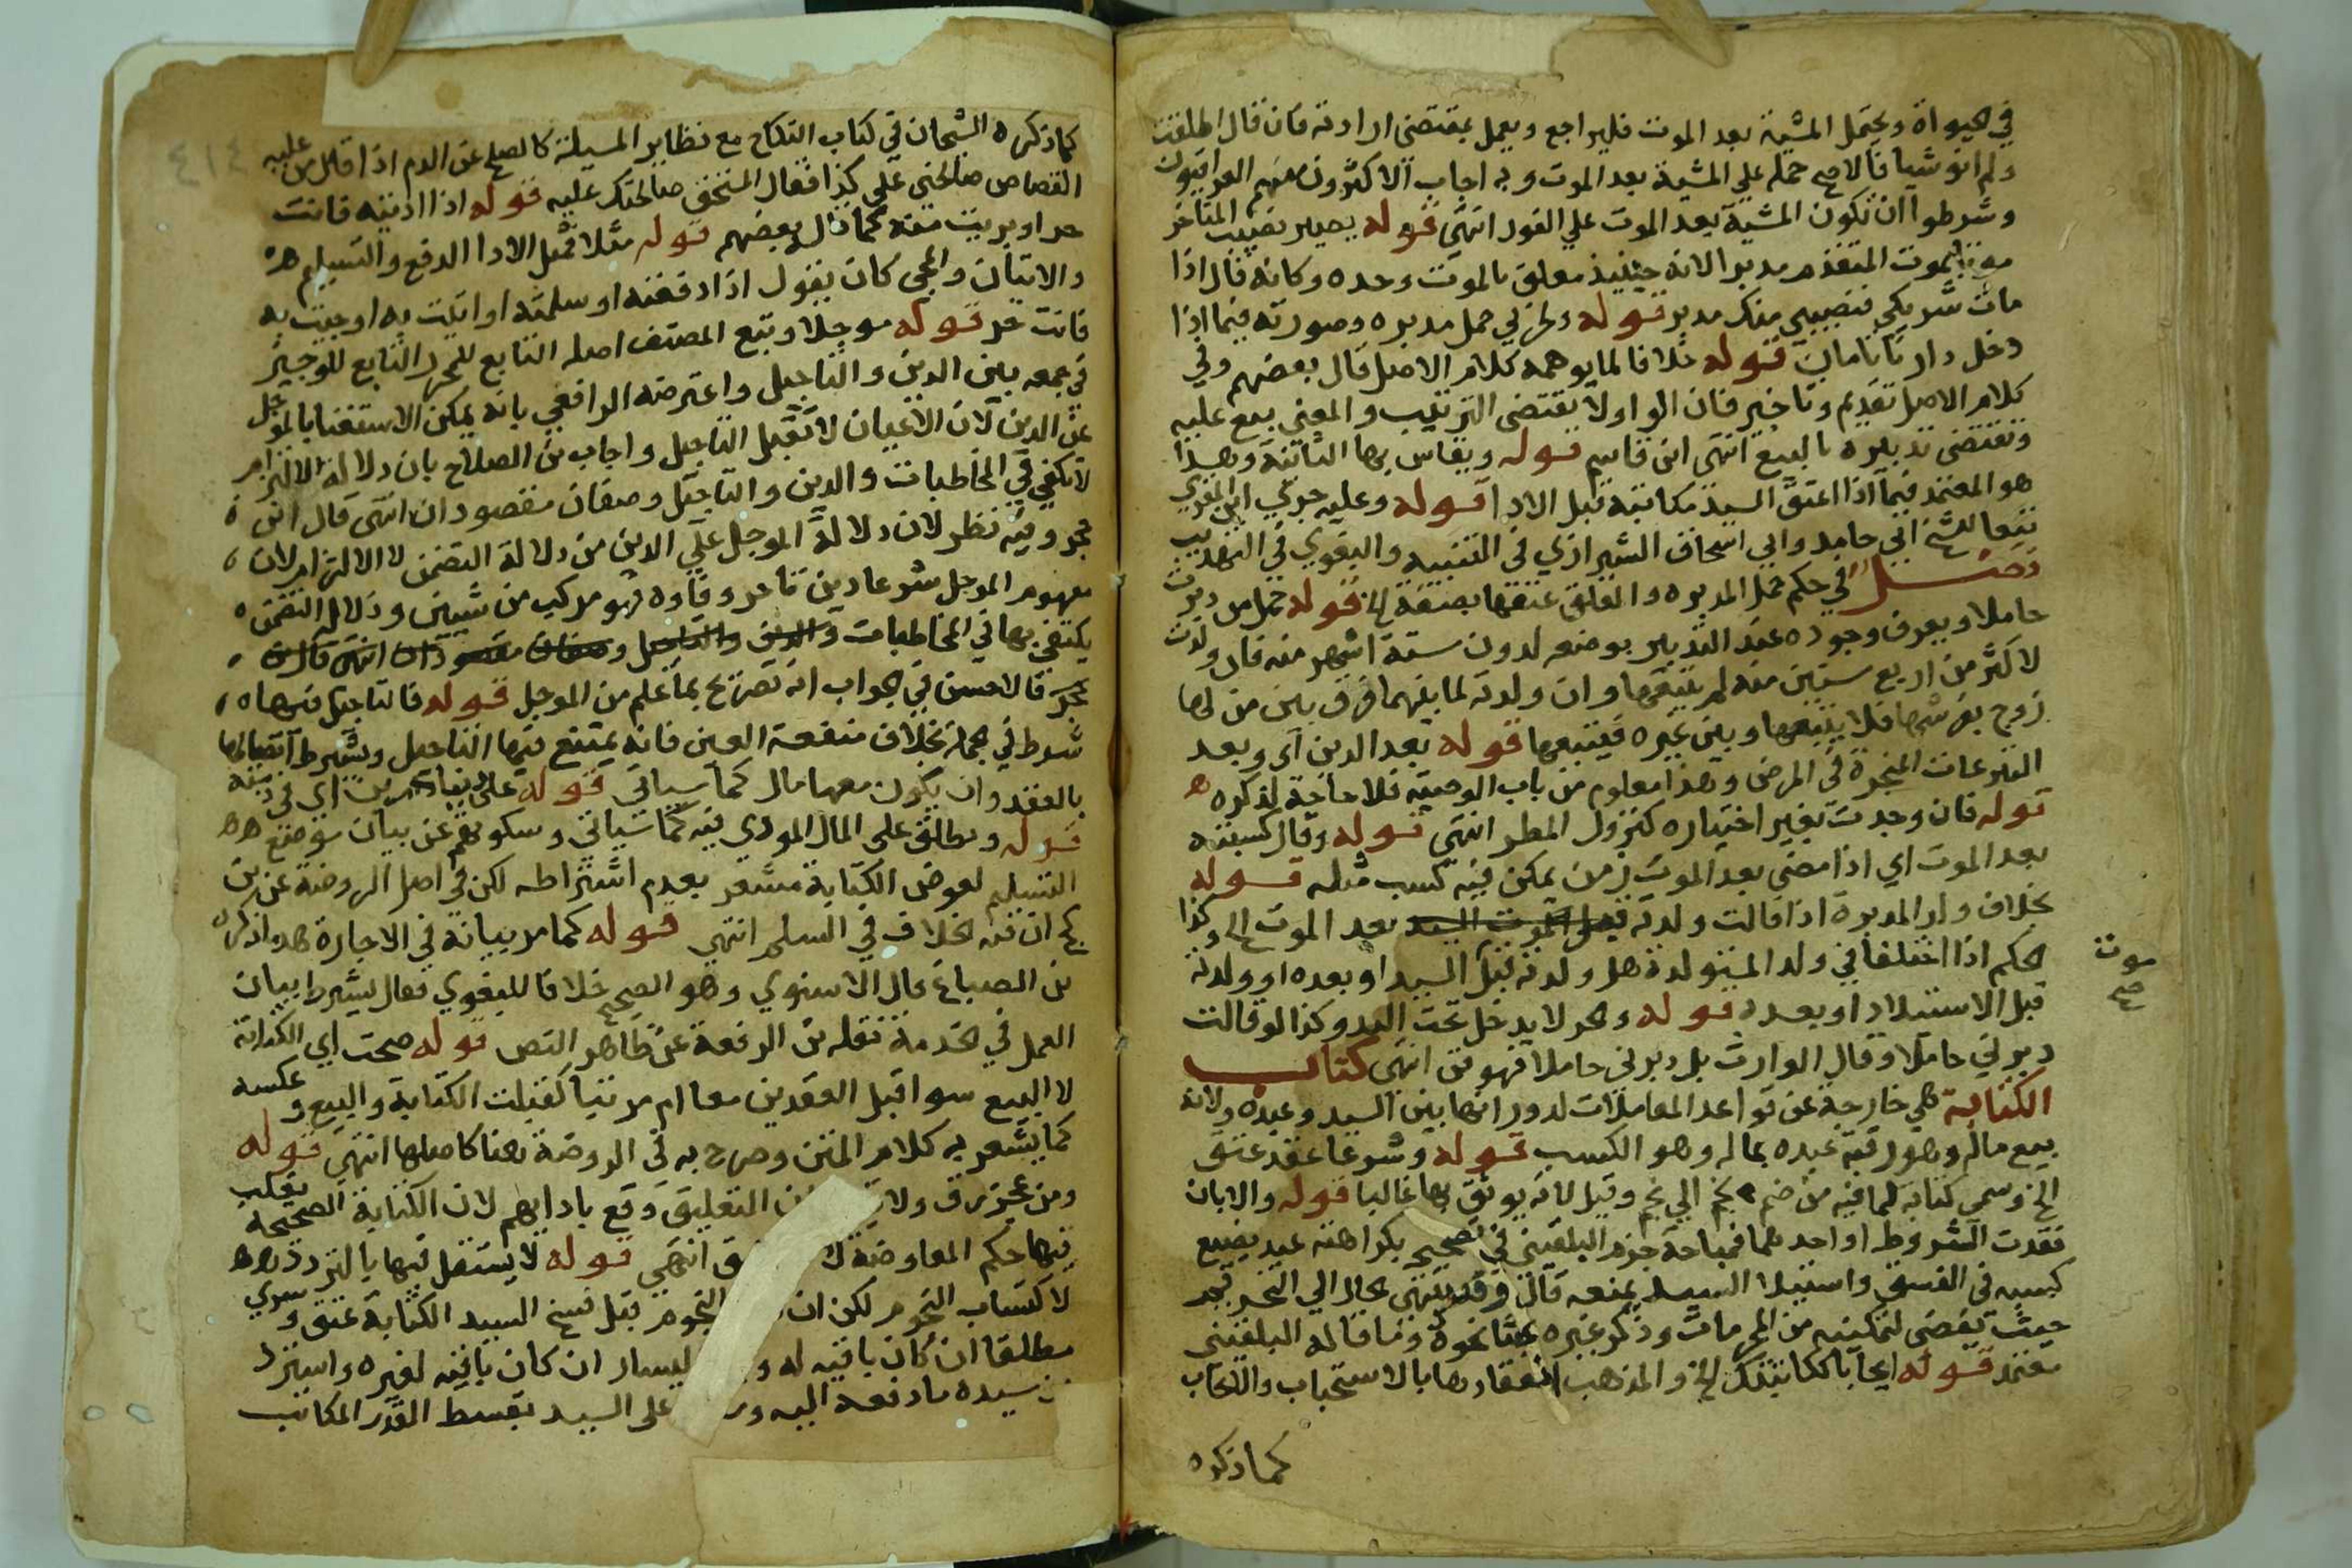 في الحيواة ويحتمل المشية بعد الموت فليراجع ويعمل بمقتضى ارادته فان قال اطلقت
ولم انو شيا فالاصح حمله علي المشية بعد الموت وبه اجاب الاكثرون منهم العراقيون
وشرطوا ان تكون المشية بعد الموت علي الفور انتهى قوله يصير نصيب المتاخر
موتا بموت المتقدم مدبرا لانه حينيذ معلق بالموت وحده وكانه قال اذا
مات شريكي فنصيبي منك مدبر قوله ولحربي حمل مدبره وصورته فيما اذا
دخل دارنا بامان قوله خلافا لما يوهمه كلام الاصل قال بعضهم وفي
كلام الاصل تقديم وتاخير فان الواو لا يقتضى الترتيب والمعنى بيع عليه
ونقتضى تدبيره بالبيع انتهى ابن قاسم قوله ويقاس بها الثانية وهذا
هو المعتمد فيما اذا اعتق السيد مكاتبه قبل الادا قوله وعليه جرى ابن المقري
تبعا للشيخ ابي حامد وابي اسحاق الشيرازي في التنبيه والبغوي في التهذيب
فصل في حكم حمل المدبره والمعلق عتقها بصفة الخ قوله حمل من دبرت
حاملا ويعرف وجوده عند التدبير بوضعه لدون ستة اشهر منه فان ولدت
لاكثر من اربع سنين منه لم يتبعها وان ولدته لما بينهما فرق بين من لها
زوج يفرشها فلا يتبعها وبين غيره فيتبعها قوله بعد الدين اى وبعد
التبرعات المنجزة في المرض وهذا معلوم من باب الوصية فلا حاجة لذكره
قوله فان وجدت بغير اختياره كنزول المطر انتهى قوله وقال كسبته
بعد الموت اي اذا مضى بعد الموت زمن يمكن فيه كسب مثله قوله
بخلاف ولد المدبرة اذا قالت ولدته قبل الموت السيد بعد الموت الخ وكذا
الحكم اذا اختلفا في ولد المستولدة هل ولدته قبل السيد او بعده او ولدته
موت
صح
قبل الاستيلاد او بعده قوله والحر لا يدخل تحت اليد وكذا لو قالت
دبرني حاملا وقال الوارث بل دبرني حاملا فهو قن انتهى كتاب
الكتابة هي خارجة عن قواعد المعاملات لدورانها بين السيد وعبده ولانه
بيع ماله وهو رقبة عبده بماله وهو الكسب قوله وشرعا عقد عتق
الخ وسمي كتابة لما فيه من ضم نجم الي نجم وقيل لانه يوثق بها غالبا قوله والا بان
فقدت الشروط او احدهما فمباحة جزم البلقيني في تصحيح بكراهته عبد يضيع
كسبه في الفسق واستيلا السيد يمنعه قال وقد ينتهى بحال الي التحريم
حيث يفضى لتمكينه من المحرمات وذكر غيره بحثا نحوه وما قاله البلقيني
معتمد قوله ايجابا ككاتبتك الخ والمذهب انعقادها بالاستحباب والايجاب
كما ذكره
كما ذكره الشيخان في كتاب النكاح مع نظاير المسيلة كالصلح عن الدم اذا قال من عليه
القصاص صالحني علي كذا فقال المستحق صالحتك عليه قوله اذا اديته فانت
حر او بريت منه كما قال بعضهم قوله مثلا فمثل الادا الدفع والتسليم
والاتيان والمجى كان يقول اذا دفعته او سلمته او اتيت به او جيت به
فانت حر قوله موجلا وتبع المصنف اصله التابع للمحرر التابع للوجيز
في جمعه بين الدين والتاجيل واعترضه الرافعي بانه يمكن الاستغنا بالموجل
عن الدين لان الاعيان لا تقبل التاجيل واجاب بن الصلاح بان دلالة الالتزام
لا تكفي في المخاطبات والدين والتاجيل وصفان مقصودان انتهى قال ابن
حجر وفيه نظر لان دلالة الموجل علي الدين من دلالة التضمن لا الالتزام لان
مفهوم الموجل شرعا دين تاخر وفاوه فهو مركب من شيين ودلالة التضمن
يكتفى بها في المخاطبات والدين والتاجيل وصفان مقصودان انتهى قال ابن
حجر فالاحسن في الجواب انه تصريح بما علم من الموجل قوله فالتاجيل فيها
شرط في الجملة بخلاف منفعة العين فانه يمتنع فيها التاجيل ويشترط اتصالها
بالعقد وان يكون معها مال كما سياتي قوله على بنا دارين اى في ذمته
قوله ويطلق على المال المودى فيه كما سياتي وسكوتهم عن بيان موضع
التسليم لعوض الكتابة مشعر بعدم اشتراطه لكن في اصل الروضة عن بن
كج ان فيه الخلاف في السلم انتهى قوله كما مر بيانه في الاجارة هو ما ذكره
بن الصباغ قال الاسنوي وهو الصحيح خلافا للبغوي فقال يشترط بيان
العمل في الخدمة نقله بن الرفعة عن ظاهر النص قوله صحت اي الكتابة
لا البيع سوا قبل العقدين معا ام مرتبا كقبلت الكتابة والبيع وعكسه
كما يشعر به كلام المتن وصرح به في الروضة هنا كاصلها انتهى قوله
ان التعليق وقع بادايهم لان الكتابة الصحيحة يغلب
فيها حكم المعاوضة انتهى قوله لا يستقل فيها بالتردد
لاكتساب النجوم لكن ان النجوم قبل فسخ السيد الكتابة عتق وسرى
مطلقا ان كان باقيه له اليسار ان كان باقيه لغيره واسترد
من سيده ما دفعه اليه على السيد بقسط القدر المكاتب